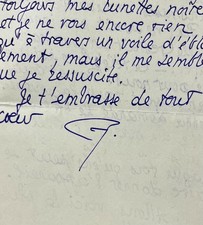 toujours mes lunettes noires
et je ne vois encore rien
qu'à travers un voile d'ébl
ement, mais il me semble
que je ressuscite.
Je t'embrasse de tout
coeur